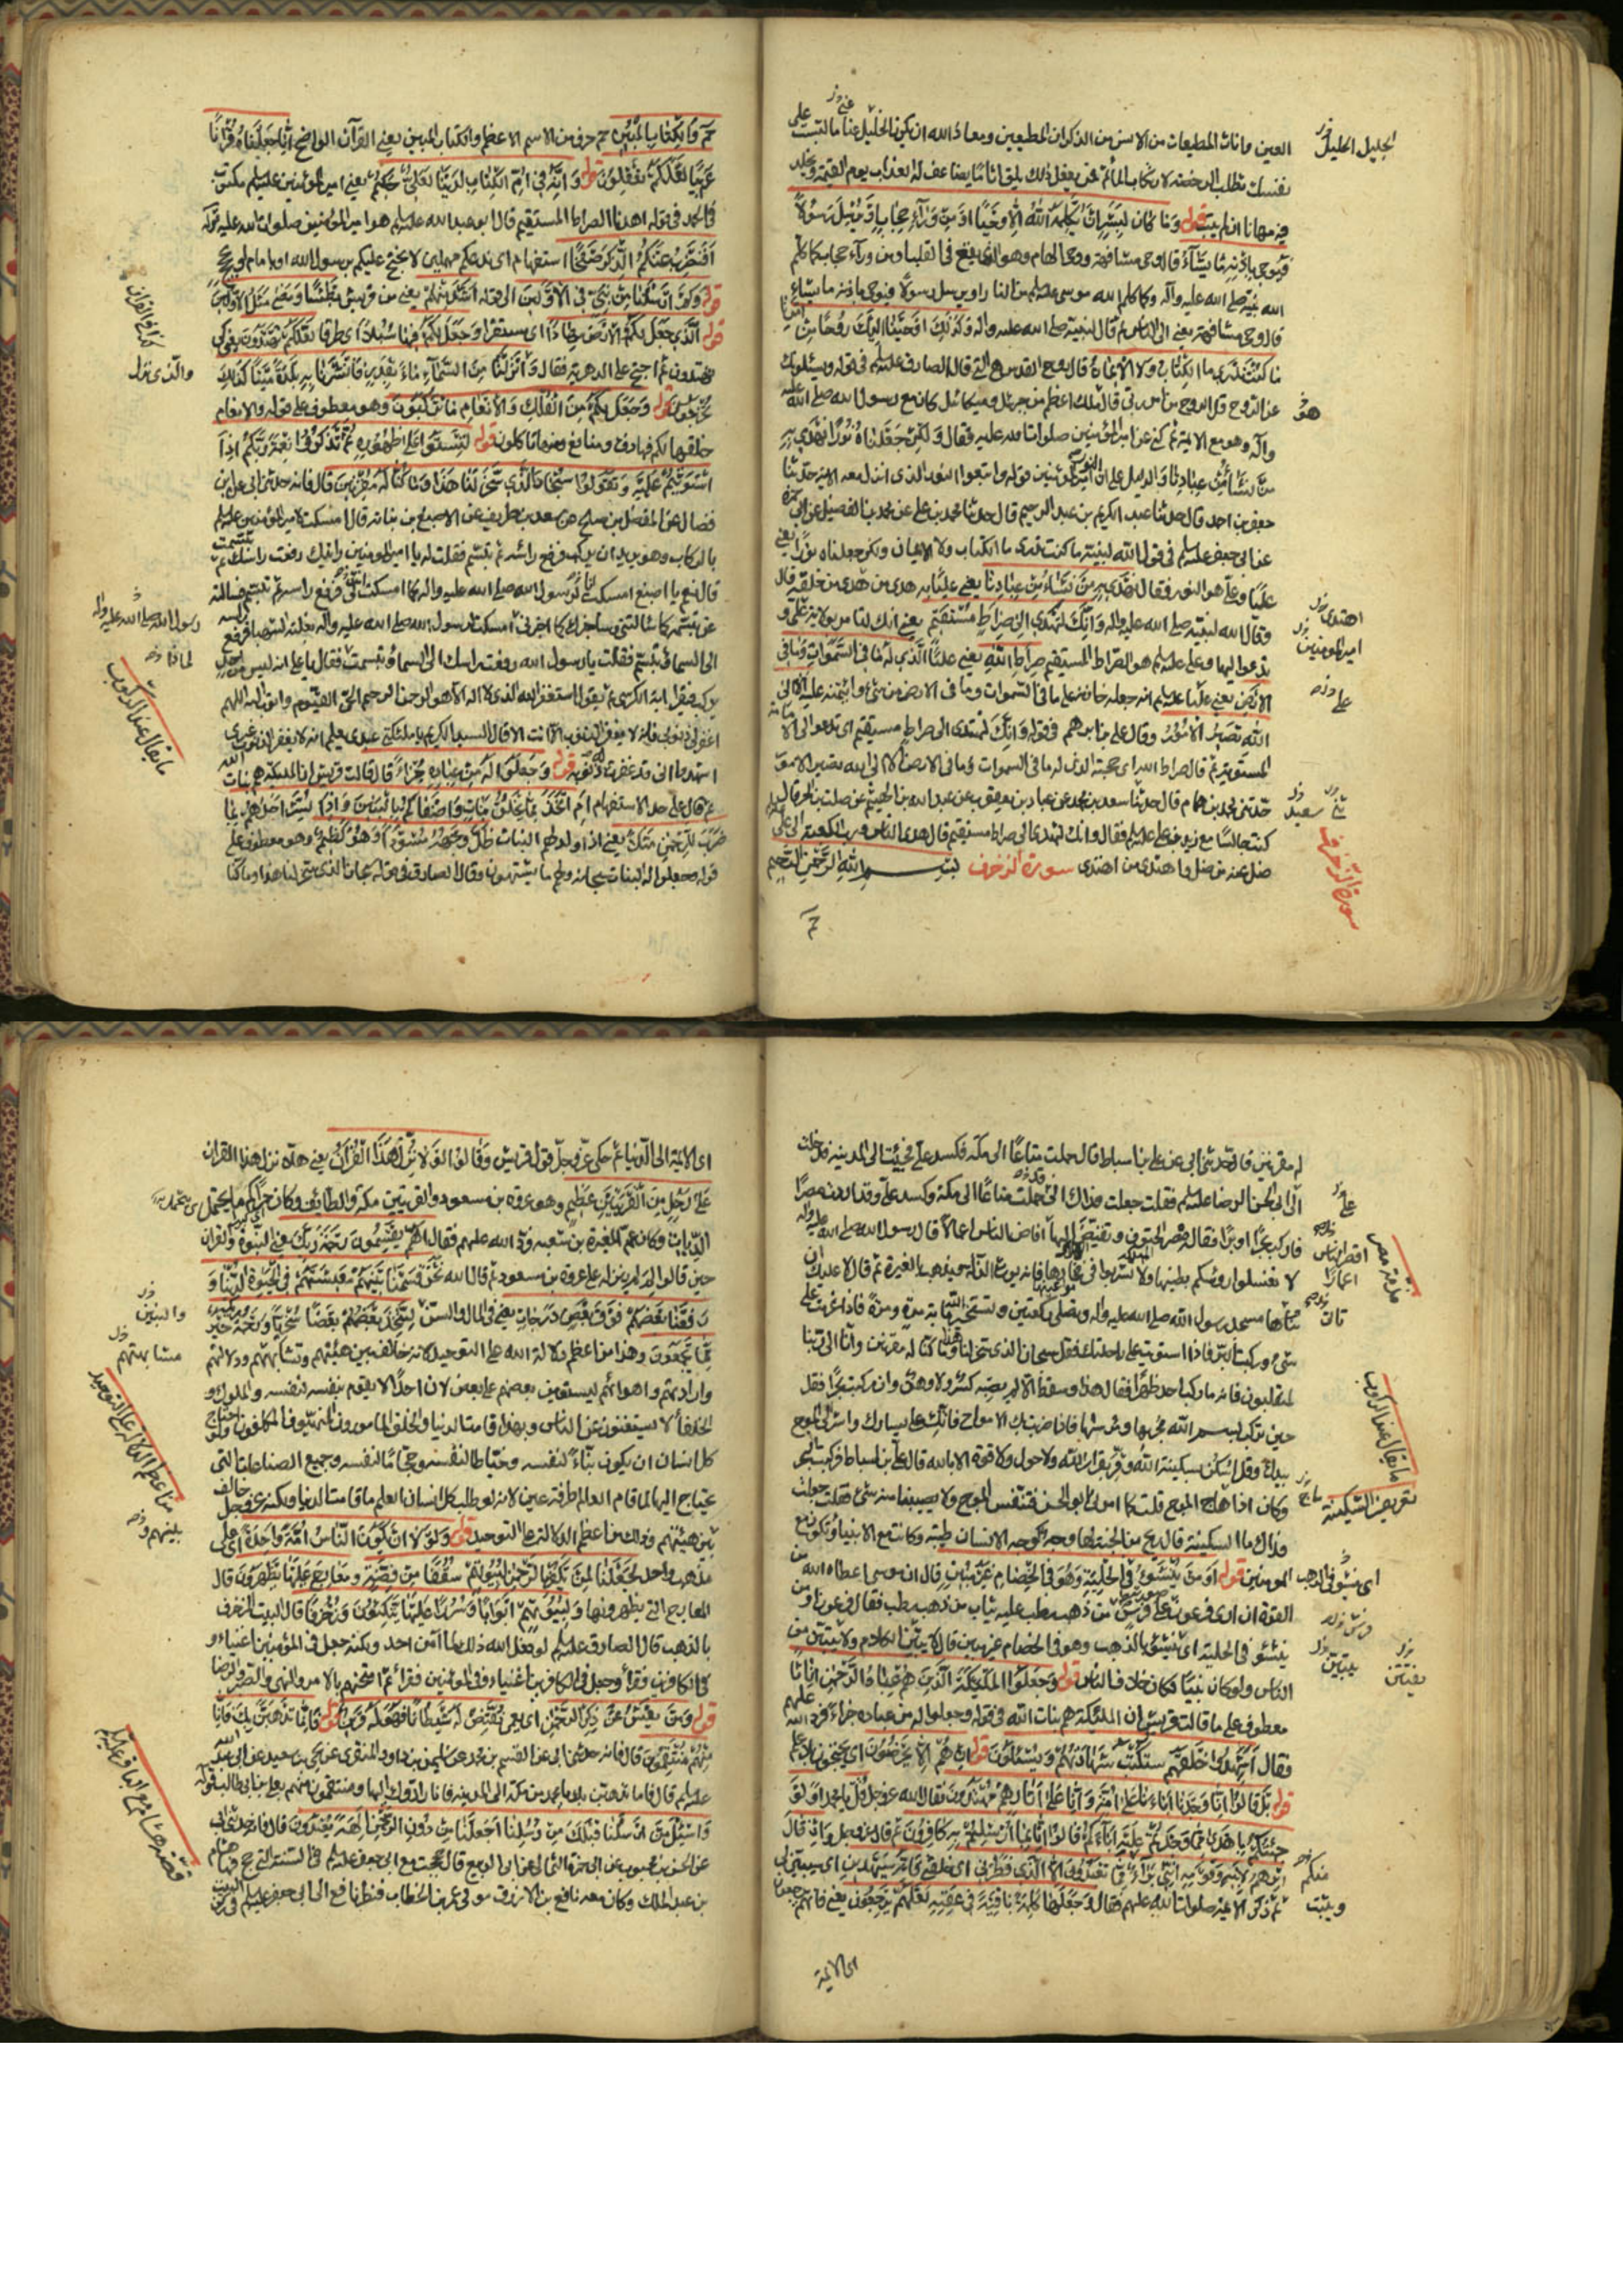 العين وانات المطيعات من الانس من الذكران المطيعين ومعاذ الله ان يكون الجليل عنى ما لبست على
نفسك تطلب الرخصة لارتكاب المأثم فمن يفعل ذلك يلق اثاما يضاعف له العذاب يوم القيمة ويخلد
فيه مهانا ان لم يتب قوله وما كان لبشر ان يكلمه الله الا وحيا او من وراء حجاب او يرسل رسولا
فيوحى باذنه ما يشاء قال وحى مشافهة ووحى الهام وهو الذي يقع في القلب او من وراء حجاب كما كلم
الله نبيه صلى الله عليه وآله وكما كلم الله موسى عليه السلم من النار او يرسل رسولا فيوحى باذنه ما يشاء
قال وحى مشافهة يعني الى الناس ثم قال لنبيه صلى الله عليه وآله وكذلك اوحينا اليك روحا من امرنا
ما كنت تدري ما الكتاب ولا الايمان قال روح القدس هي التي قال الصادق عليه السلم في قوله ويسئلونك
عن الروح قل الروح من امر ربي قال ملك اعظم من جبرئيل وميكائيل كان مع رسول الله صلى الله عليه
وآله وهو مع الائمة ثم كنى عن امير المؤمنين صلوات الله عليه فقال ولكن جعلناه نورا نهدي به
من نشاء من عبادنا والدليل على ان النور امير المؤمنين قوله واتبعوا النور الذي انزل معه الاية حدثنا
جعفر بن احمد قال حدثنا عبد الكريم بن عبد الرحيم قال حدثنا محمد بن علي عن محمد بن الفضيل عن ابي حمزة
عن ابي جعفر عليه السلم في قول الله لنبيه ما كنت تدري ما الكتاب ولا الايمان ولكن جعلناه نورا يعني
عليا وعلي هو النور فقال نهدي به من نشاء من عبادنا يعني عليا به هدى من هدى من خلقه قال
وقال الله لنبيه صلى الله عليه وآله وانك لتهدي الى صراط مستقيم يعني انك لتامر بولاية علي و
تدعو اليها وعلي عليه السلم هو الصراط المستقيم صراط الله يعني عليا الذي له ما في السموات وما في
الارض يعني عليا عليه السلم انه جعله خازنه على ما في السموات وما في الارض من شئ وائتمنه عليه الا الى
الله تصير الامور وقال علي بن ابرهيم في قوله وانك لتهدي الى صراط مستقيم اى تدعو الى الامامة
المستوية ثم قال صراط الله اى حجة الله الذي له ما في السموات وما في الارض الا الى الله تصير الامور
حدثني محمد بن همام قال حدثنا سعد بن محمد عن عباد بن يعقوب عن عبد الله بن الهيثم عن صلت بن الحر قال
كنت جالسا مع زيد بن علي عليه السلم فقرأ وانك لتهدي الى صراط مستقيم قال هدى الناس ورب الكعبة الى علي
ضل عنه من ضل واهتدى من اهتدى سورة الزخرف بسم الله الرحمن الرحيم
حم
الجليل الجليل
هو
اهتدى
امير المؤمنين
على
سعيد
سورة الزخرف
حم والكتاب المبين حم حرف من الاسم الاعظم والكتاب المبين يعني القرآن الواضح انا جعلناه قرآنا
عربيا لعلكم تعقلون قوله وانه في ام الكتاب لدينا لعلي حكيم يعني امير المؤمنين عليه السلم مكتوب
في الحمد في قوله اهدنا الصراط المستقيم قال ابو عبد الله عليه السلم هو امير المؤمنين صلوات الله عليه قوله
افنضرب عنكم الذكر صفحا استفهام اى ندعكم مهملين لا نحتج عليكم برسول الله او بامام او بحجج
قوله وكم ارسلنا من نبي في الاولين الى قوله اشد منهم يعني من قريش بطشا ومضى مثل الاولين
قوله الذي جعل لكم الارض مهادا اى مستقرا وجعل لكم فيها سبلا اى طرقا لعلكم تهتدون يعني كى
تهتدون ثم احتج على الدهرية فقال والذي نزل من السماء ماء بقدر فانشرنا به بلدة ميتا كذلك
تخرجون قوله وجعل لكم من الفلك والانعام ما تركبون وهو معطوف على قوله والانعام
خلقها لكم فيها دفء ومنافع ومنها تاكلون قوله لتستووا على ظهوره ثم تذكروا نعمة ربكم اذا
استويتم عليه وتقولوا سبحان الذي سخر لنا هذا وما كنا له مقرنين قال فانه حدثني ابي عن علي بن
فضال عن المفضل بن صالح عن سعد بن طريف عن الاصبغ بن نباته قال امسكت لامير المؤمنين عليه السلم
بالركاب وهو يريد ان يركب فرفع رأسه ثم تبسم فقلت له يا امير المؤمنين رأيتك رفعت راسك ثم تبسمت
قال نعم يا اصبغ امسكت لرسول الله صلى الله عليه وآله كما امسكت لي فرفع راسه ثم تبسم فسالته
عن تبسمه كما سالتني وساخبرك كما اخبرني امسكت لرسول الله صلى الله عليه وآله بغلته الشهباء فرفع راسه
الى السماء ثم تبسم فقلت يا رسول الله رفعت راسك الى السماء وتبسمت فقال يا علي انه ليس من احد
يركب فيقرا اية الكرسي ثم يقول استغفر الله الذي لا اله الا هو الرحمن الرحيم الحي القيوم واتوب اليه اللهم
اغفر لي ذنوبي فانه لا يغفر الذنوب الا انت الا قال السيد الكريم يا ملئكتي عبدي يعلم انه لا يغفر الذنوب غيري
اشهدوا اني قد غفرت له ذنوبه قوله وجعلوا له من عباده جزءا قال قالت قريش ان الملئكة هم بنات الله
ثم قال على حد الاستفهام ام اتخذ مما يخلق بنات واصفاكم بالبنين واذا بشر احدهم بما
ضرب للرحمن مثلا يعني اذا ولد لهم البنات ظل وجهه مسودا وهو كظيم وهو معطوف على
قوله ويجعلون لله البنات سبحانه ولهم ما يشتهون وقال الصادق في قوله سبحان الذي سخر لنا هذا وما كنا
والذي نزل
رسول الله صلى الله عليه وآله
لماذا
ما يقال عند الركوب
له مقرنين قال حدثني ابي عن علي بن اسباط قال حملت متاعا الى مكة فكسد علي فجئت الى المدينة فدخلت
الى ابي الحسن الرضا عليه السلم فقلت جعلت فداك اني قد حملت متاعا الى مكة وكسد علي وقد اردت مصرا
فاركب بحرا او برا فقال مصر الحتوف وتقيض اليها اقصر الناس اعمارا قال رسول الله صلى الله عليه وآله
لا تغسلوا رؤسكم بطينها ولا تشربوا في فخارها فانه يورث الذلة ويذهب بالغيرة ثم قال لا عليك ان
تأتي مسجد رسول الله صلى الله عليه وآله وتصلي ركعتين وتستخير الله مائة مرة ومرة فاذا عزمت على
شئ وركبت البر فاذا استويت على راحلتك فقل سبحان الذي سخر لنا هذا وما كنا له مقرنين وانا الى ربنا
لمنقلبون فانه ما ركب احد ظهرا فقال هذا وسقط الا لم يصبه كسر ولا وهن وان ركبت بحرا فقل
حين تركب بسم الله مجريها ومرسيها فاذا ضربت بك الامواج فاتكئ على يسارك واشر الى الموج
بيدك وقل اسكن بسكينة الله وقر بقرار الله ولا حول ولا قوة الا بالله قال علي بن اسباط فركبت البحر
وكان اذا هاج الموج قلت كما امرني ابو الحسن فتنفس الموج ولا يصيبنا منه شئ فقلت جعلت
فداك ما السكينة قال ريح من الجنة لها وجه كوجه الانسان طيبة وكانت مع الانبياء وتكون مع
المومنين قوله او من ينشؤ في الحلية وهو في الخصام غير مبين قال ان موسى اعطاه الله من
القوة ان ارى فرعون صورته على فرس من ذهب رطب عليه ثياب من ذهب رطب فقال فرعون او من
ينشؤ في الحلية اى ينشؤ بالذهب وهو في الخصام غير مبين قال لا يبين الكلام ولا يتبين من
الناس ولو كان نبيا لكان خلاف الناس قوله وجعلوا الملئكة الذين هم عباد الرحمن اناثا
معطوف على ما قالت قريش ان الملئكة هم بنات الله في قوله وجعلوا له من عباده جزءا فرد الله عليهم
فقال اشهدوا خلقهم ستكتب شهادتهم ويسئلون قوله ان هم الا يخرصون اى يحتجون بلا علم
قوله بل قالوا انا وجدنا آباءنا على امة وانا على آثارهم مهتدون فقال الله عز وجل قل يا محمد اولو
جئتكم باهدى مما وجدتم عليه آباءكم قالوا انا بما ارسلتم به كافرون ثم قال عز وجل واذ قال
ابرهيم لابيه وقومه انني براء مما تعبدون الا الذي فطرني اى خلقني فانه سيهدين اى سيثبتني
ثم ذكر الائمة صلوات الله عليهم فقال وجعلها كلمة باقية في عقبه لعلهم يرجعون يعني فانهم يرجعون
اى الائمة
اقصر الناس
اعمارا
تاتي
ما يقال عند الركوب
تعريف السكينة
اى ينشؤ في الذهب
منكم
ويثبت
اى الائمة الى الدنيا ثم حكى عز وجل قول قريش وقالوا لولا نزل هذا القرآن يعني هلا نزل هذا القرآن
على رجل من القريتين عظيم وهو عروة بن مسعود والقريتين مكة والطائف وكان
الديات وكان عم المغيرة بن شعبة فرد الله عليهم فقال اهم يقسمون رحمة ربك يعني النبوة والقرآن
حين قالوا لم لم ينزل على عروة بن مسعود ثم قال الله نحن قسمنا بينهم معيشتهم في الحيوة الدنيا و
رفعنا بعضهم فوق بعض درجات يعني في المال والبنين ليتخذ بعضهم بعضا سخريا ورحمة ربك خير
مما يجمعون وهذا من اعظم دلالة الله على التوحيد لانه خالف بين هيئتهم وتشابههم ودلالاتهم
واراداتهم واهوائهم ليستعين بعضهم على بعض لان احدا لا يقوم بنفسه لنفسه والملوك و
الخلفاء لا يستغنون عن الناس وبهذا قامت الدنيا والخلق المامورون المنهيون المكلفون ولو احتاج
كل انسان ان يكون بناء لنفسه وخياطا لنفسه وحجاما لنفسه وجميع الصناعات التي
يحتاج اليها لما قام العالم طرفة عين لانه لو طلب كل انسان العلم ما قامت الدنيا ولكنه عز وجل خالف
بين هيئتهم وذلك من اعظم الدلالة على التوحيد قوله ولولا ان يكون الناس امة واحدة اى على
مذهب واحد لجعلنا لمن يكفر بالرحمن لبيوتهم سقفا من فضة ومعارج عليها يظهرون قال
المعارج التي يظهرونها ولبيوتهم ابوابا وسررا عليها يتكئون وزخرفا قال البيت المزخرف
بالذهب قال الصادق عليه السلم لو فعل الله ذلك لما آمن احد ولكنه جعل في المؤمنين اغنياء و
في الكافرين فقراء وجعل في الكافرين اغنياء وفي المؤمنين فقراء ثم امتحنهم بالامر والنهي والصبر والرضا
قوله ومن يعش عن ذكر الرحمن اى يعمى نقيض له شيطانا فهو له قرين قوله فاما نذهبن بك فانا
منهم منتقمون قال فانه حدثني ابي عن القسم بن محمد عن سليمن بن داود المنقري عن يحيى بن سعيد عن ابي عبد الله
عليه السلم قال فاما نذهبن بك يا محمد من مكة الى المدينة فانا رادوك اليها ومنتقمون منهم بعلي بن ابي طالب قوله
واسئل من ارسلنا قبلك من رسلنا اجعلنا من دون الرحمن آلهة يعبدون قال فانه حدثني ابي
عن الحسن بن محبوب عن ابي حمزة الثمالي عن ابي الربيع قال حججت مع ابي جعفر عليه السلم في السنة التي حج فيها هشام
بن عبد الملك وكان معه نافع بن الازرق مولى عمر بن الخطاب فنظر نافع الى ابي جعفر عليه السلم في ركن البيت
والبنين
من اعظم الدلالة على التوحيد
بينهم